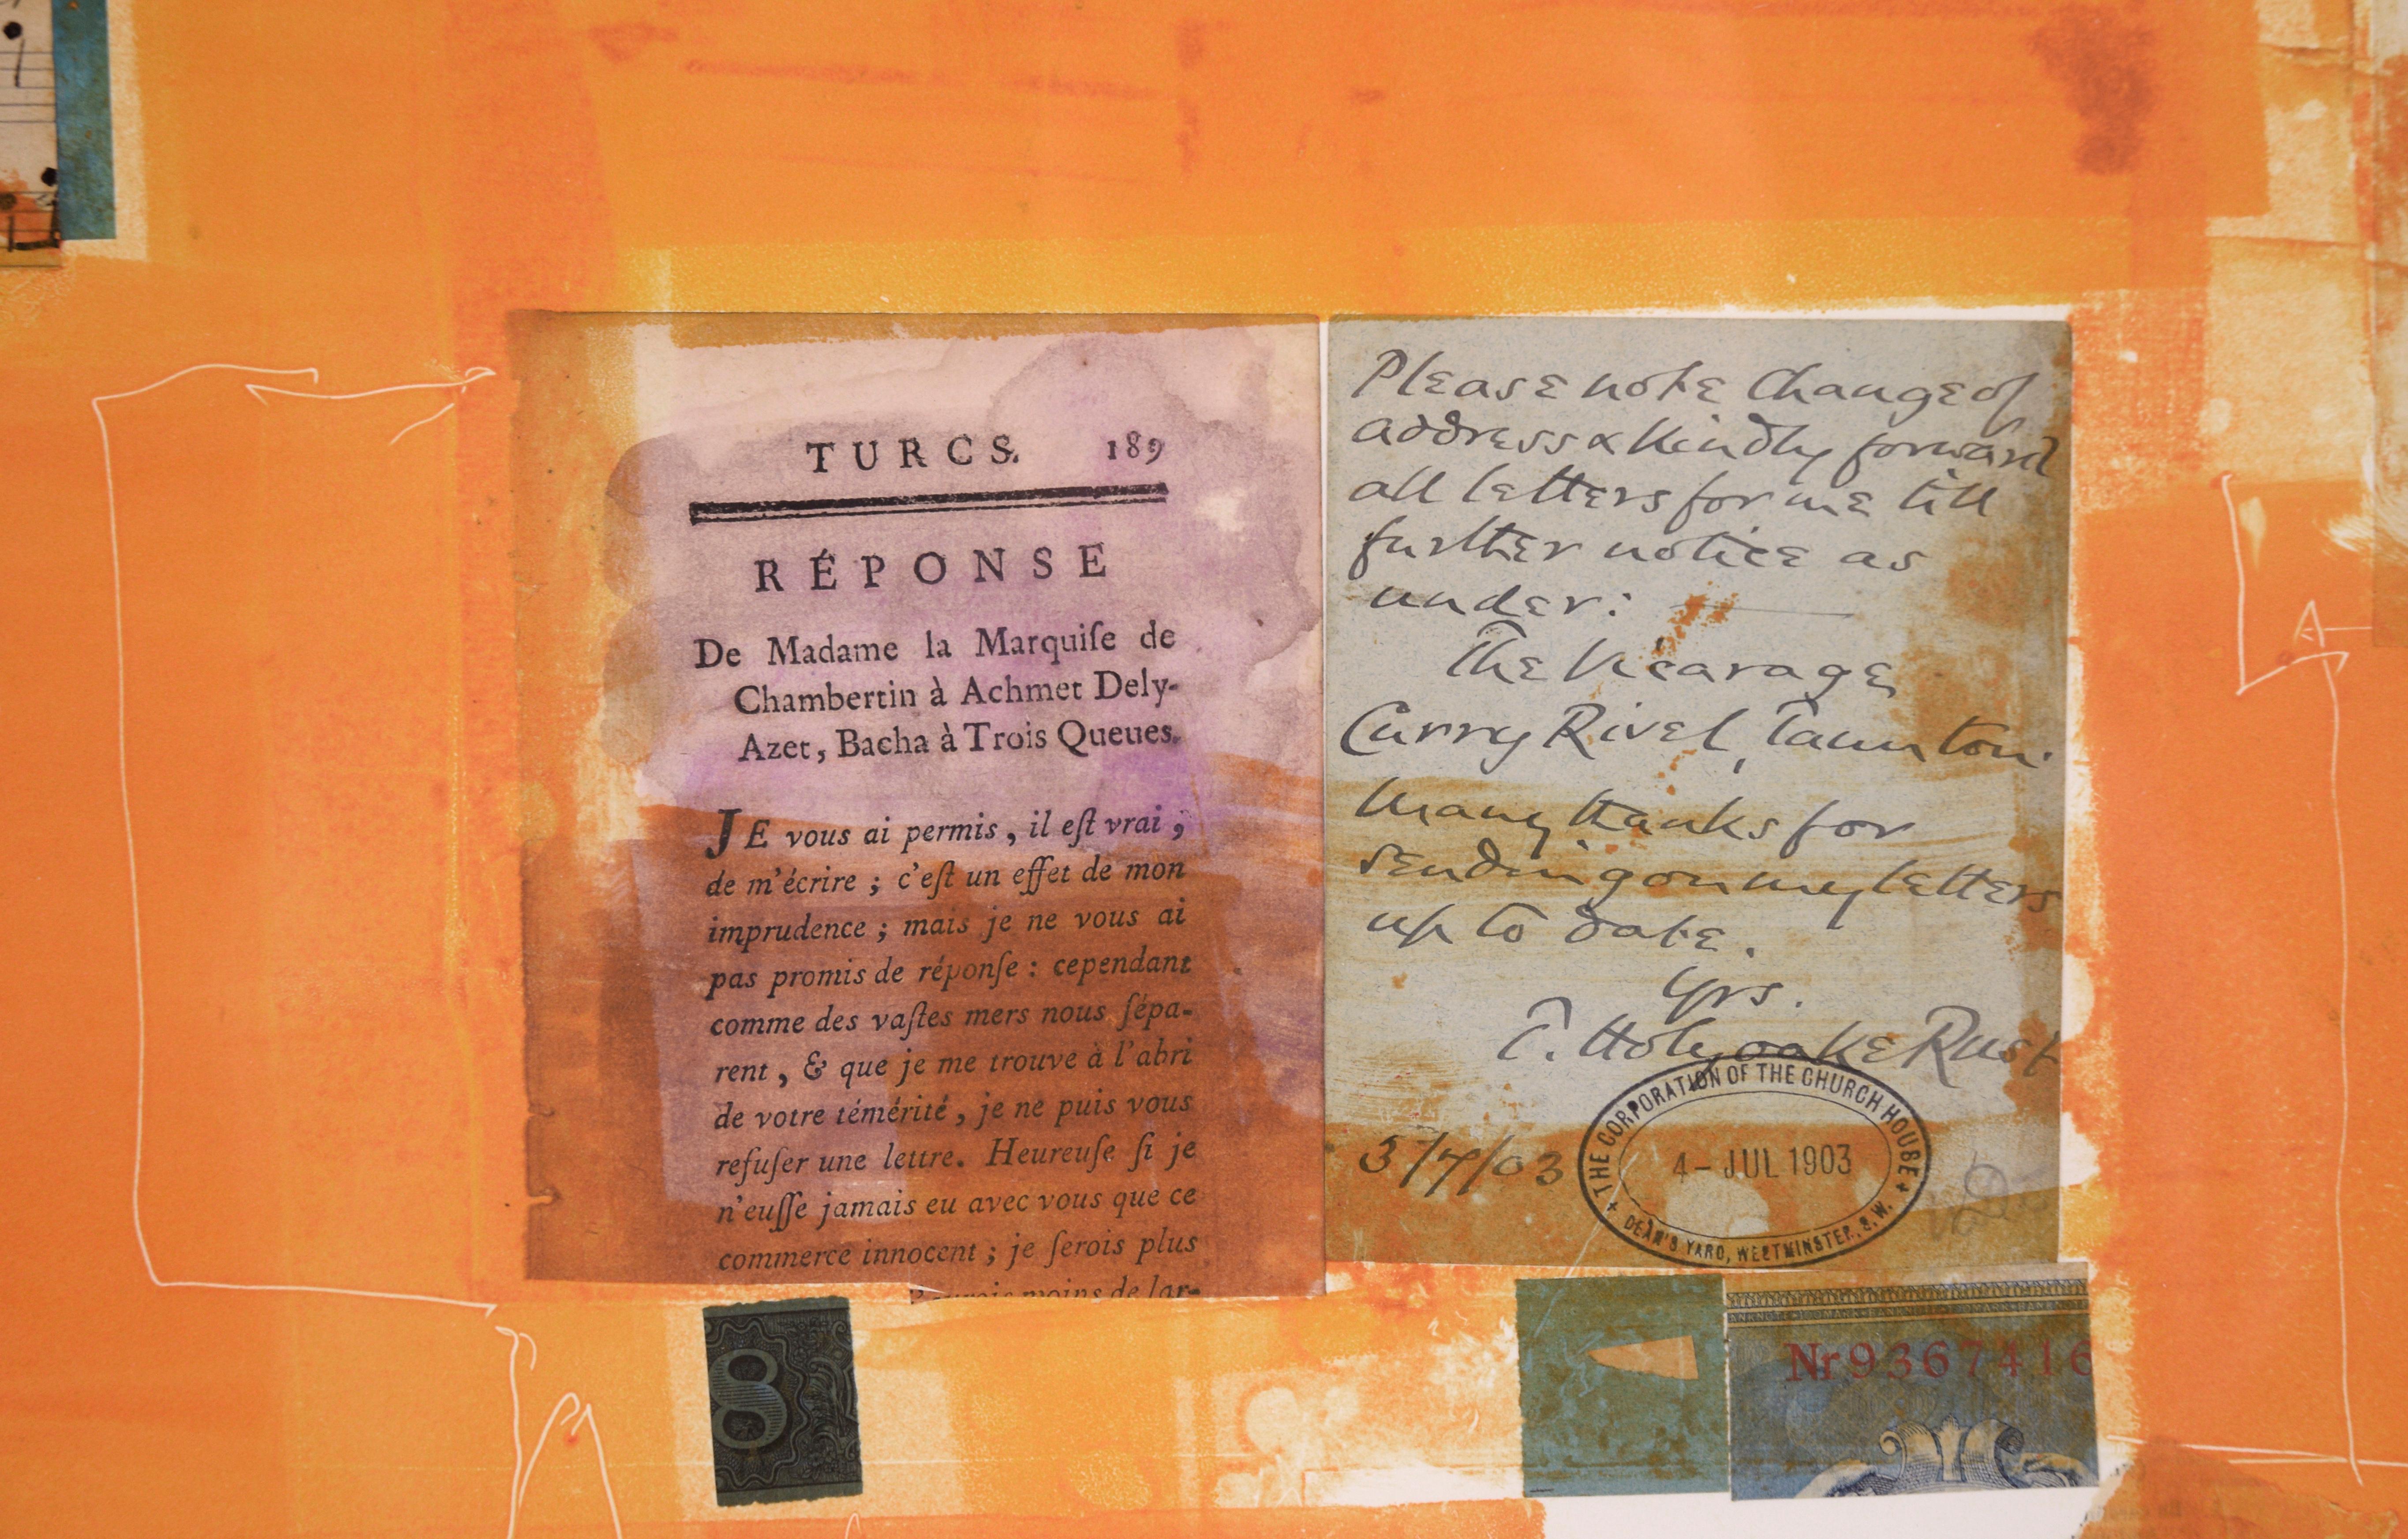 TURCS. 189
RÉPONSE
De Madame la Marquiſe de
Chambertin à Achmet Dely-
Azet, Bacha à Trois Queues.
JE vous ai permis, il eſt vrai,
de m'écrire; c'eſt un effet de mon
imprudence; mais je ne vous ai
pas promis de réponſe: cependant
comme des vaſtes mers nous ſépa-
rent, & que je me trouve à l'abri
de votre témérité, je ne puis vous
refuſer une lettre. Heureuſe ſi je
n'euſſe jamais eu avec vous que ce
commerce innocent; je ſerois plus
moins de lar-
Please note change of
address & kindly forward
all letters for me till
further notice as
under:
The Vicarage
Curry Rivel, Taunton.
Many thanks for
sending on my letters
up to date.
Yrs.
T. Holyoake Rust
3/7/03
THE CORPORATION OF THE CHURCH HOUSE
4 - JUL 1903
DEAN'S YARD, WESTMINSTER, S.W.
8
Nr 9367416